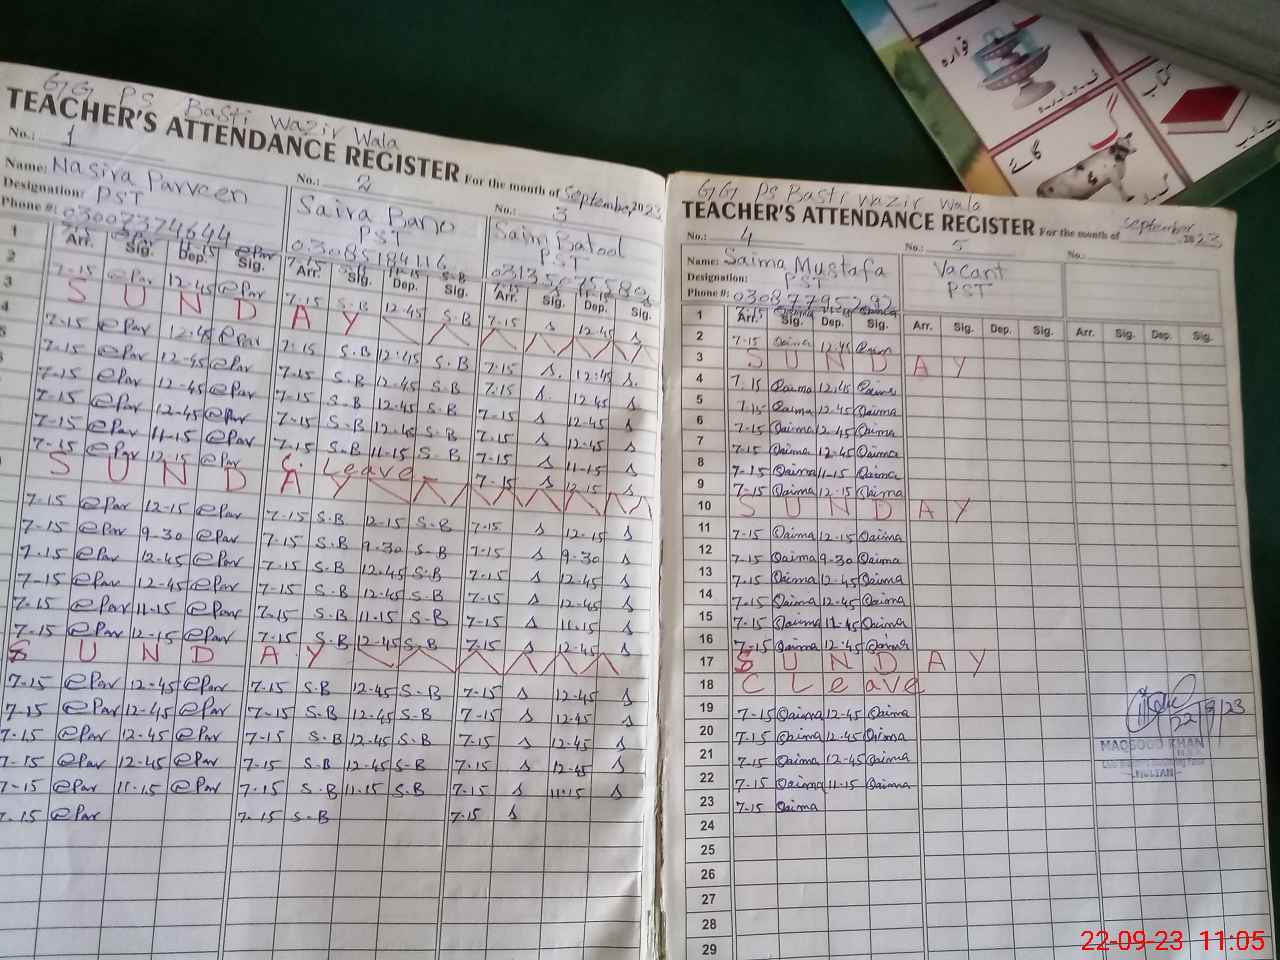 GG PS Basti Wazir Wala
TEACHER'S ATTENDANCE REGISTER For the month of September 2023
No.: 1
No.: 2
No.: 3
Name: Nasira Parveen
Saira Bano
Designation: PST
PST
PST
Phone #: 03007374644
03085184116
Arr. Sig. Dep. Sig. Arr. Sig. Dep. Sig. Arr. Sig. Dep. Sig.
1
2
3
4
7-15 12-45 7-15 S.B 12-45 S.B 7-15 12-45
S U N D A Y
7-15 12-45 7-15 S.B 12-45 S.B 7-15 12-45
7-15 12-45 7-15 S.B 12-45 S.B 7-15 12-45
7-15 12-45 7-15 S.B 12-45 S.B 7-15 12-45
7-15 12-45 7-15 S.B 12-45 S.B 7-15 12-45
7-15 11-15 7-15 S.B 11-15 S.B 7-15 11-15
7-15 12-15 C. Leave 7-15 12-15
S U N D A Y
7-15 12-15 7-15 S.B 12-15 S.B 7-15 12-15
7-15 9-30 7-15 S.B 9-30 S.B 7-15 9-30
7-15 12-45 7-15 S.B 12-45 S.B 7-15 12-45
7-15 12-45 7-15 S.B 12-45 S.B 7-15 12-45
7-15 11-15 7-15 S.B 11-15 S.B 7-15 11-15
7-15 12-15 7-15 S.B 12-45 S.B 7-15 12-45
S U N D A Y
7-15 12-45 7-15 S.B 12-45 S.B 7-15 12-45
7-15 12-45 7-15 S.B 12-45 S.B 7-15 12-45
7-15 12-45 7-15 S.B 12-45 S.B 7-15 12-45
7-15 12-45 7-15 S.B 12-45 S.B 7-15 12-45
7-15 11-15 7-15 S.B 11-15 S.B 7-15 11-15
7-15 7-15 S-B 7-15
GG PS Basti Wazir Wala
TEACHER'S ATTENDANCE REGISTER For the month of September 2023
No.: 4
No.: 5
No.:
Name: Saima Mustafa
Vacant
Designation: PST
PST
Phone #: 03087795292
Arr. Sig. Dep. Sig. Arr. Sig. Dep. Sig. Arr. Sig. Dep. Sig.
1
2 7-15 12-45
3 S U N D A Y
4 7-15 Qaima 12-45 Qaima
5 7-15 Qaima 12-45 Qaima
6 7-15 Qaima 12-45 Qaima
7 7-15 Qaima 12-45 Qaima
8 7-15 Qaima 11-15 Qaima
9 7-15 Qaima 12-15 Qaima
10 S U N D A Y
11 7-15 Qaima 12-15 Qaima
12 7-15 Qaima 9-30 Qaima
13 7-15 Qaima 12-45 Qaima
14 7-15 Qaima 12-45 Qaima
15 7-15 Qaima 11-45 Qaima
16 7-15 Qaima 12-45 Qaima
17 S U N D A Y
18 C Leave
19 7-15 Qaima 12-45 Qaima
20 7-15 Qaima 12-45 Qaima
21 7-15 Qaima 12-45 Qaima
22 7-15 Qaima 11-15 Qaima
23 7-15 Qaima
24
25
26
27
28
29
22/9/23
MAQSOOD KHAN
MULTAN
فوارہ
کتاب
گائے
22-09-23 11:05